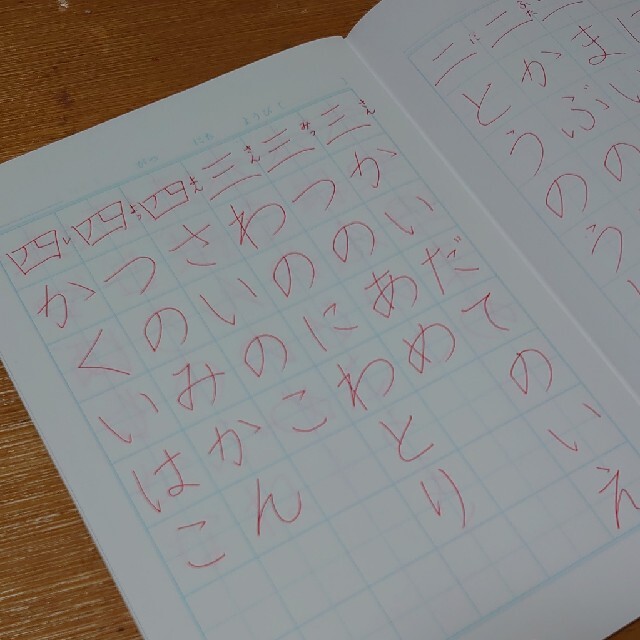 二かぶの
二とうのうし
三かいだてのいえ
三つのあめ
三わのにわとり
四さいのこ
四つのみかん
四かくいはこ